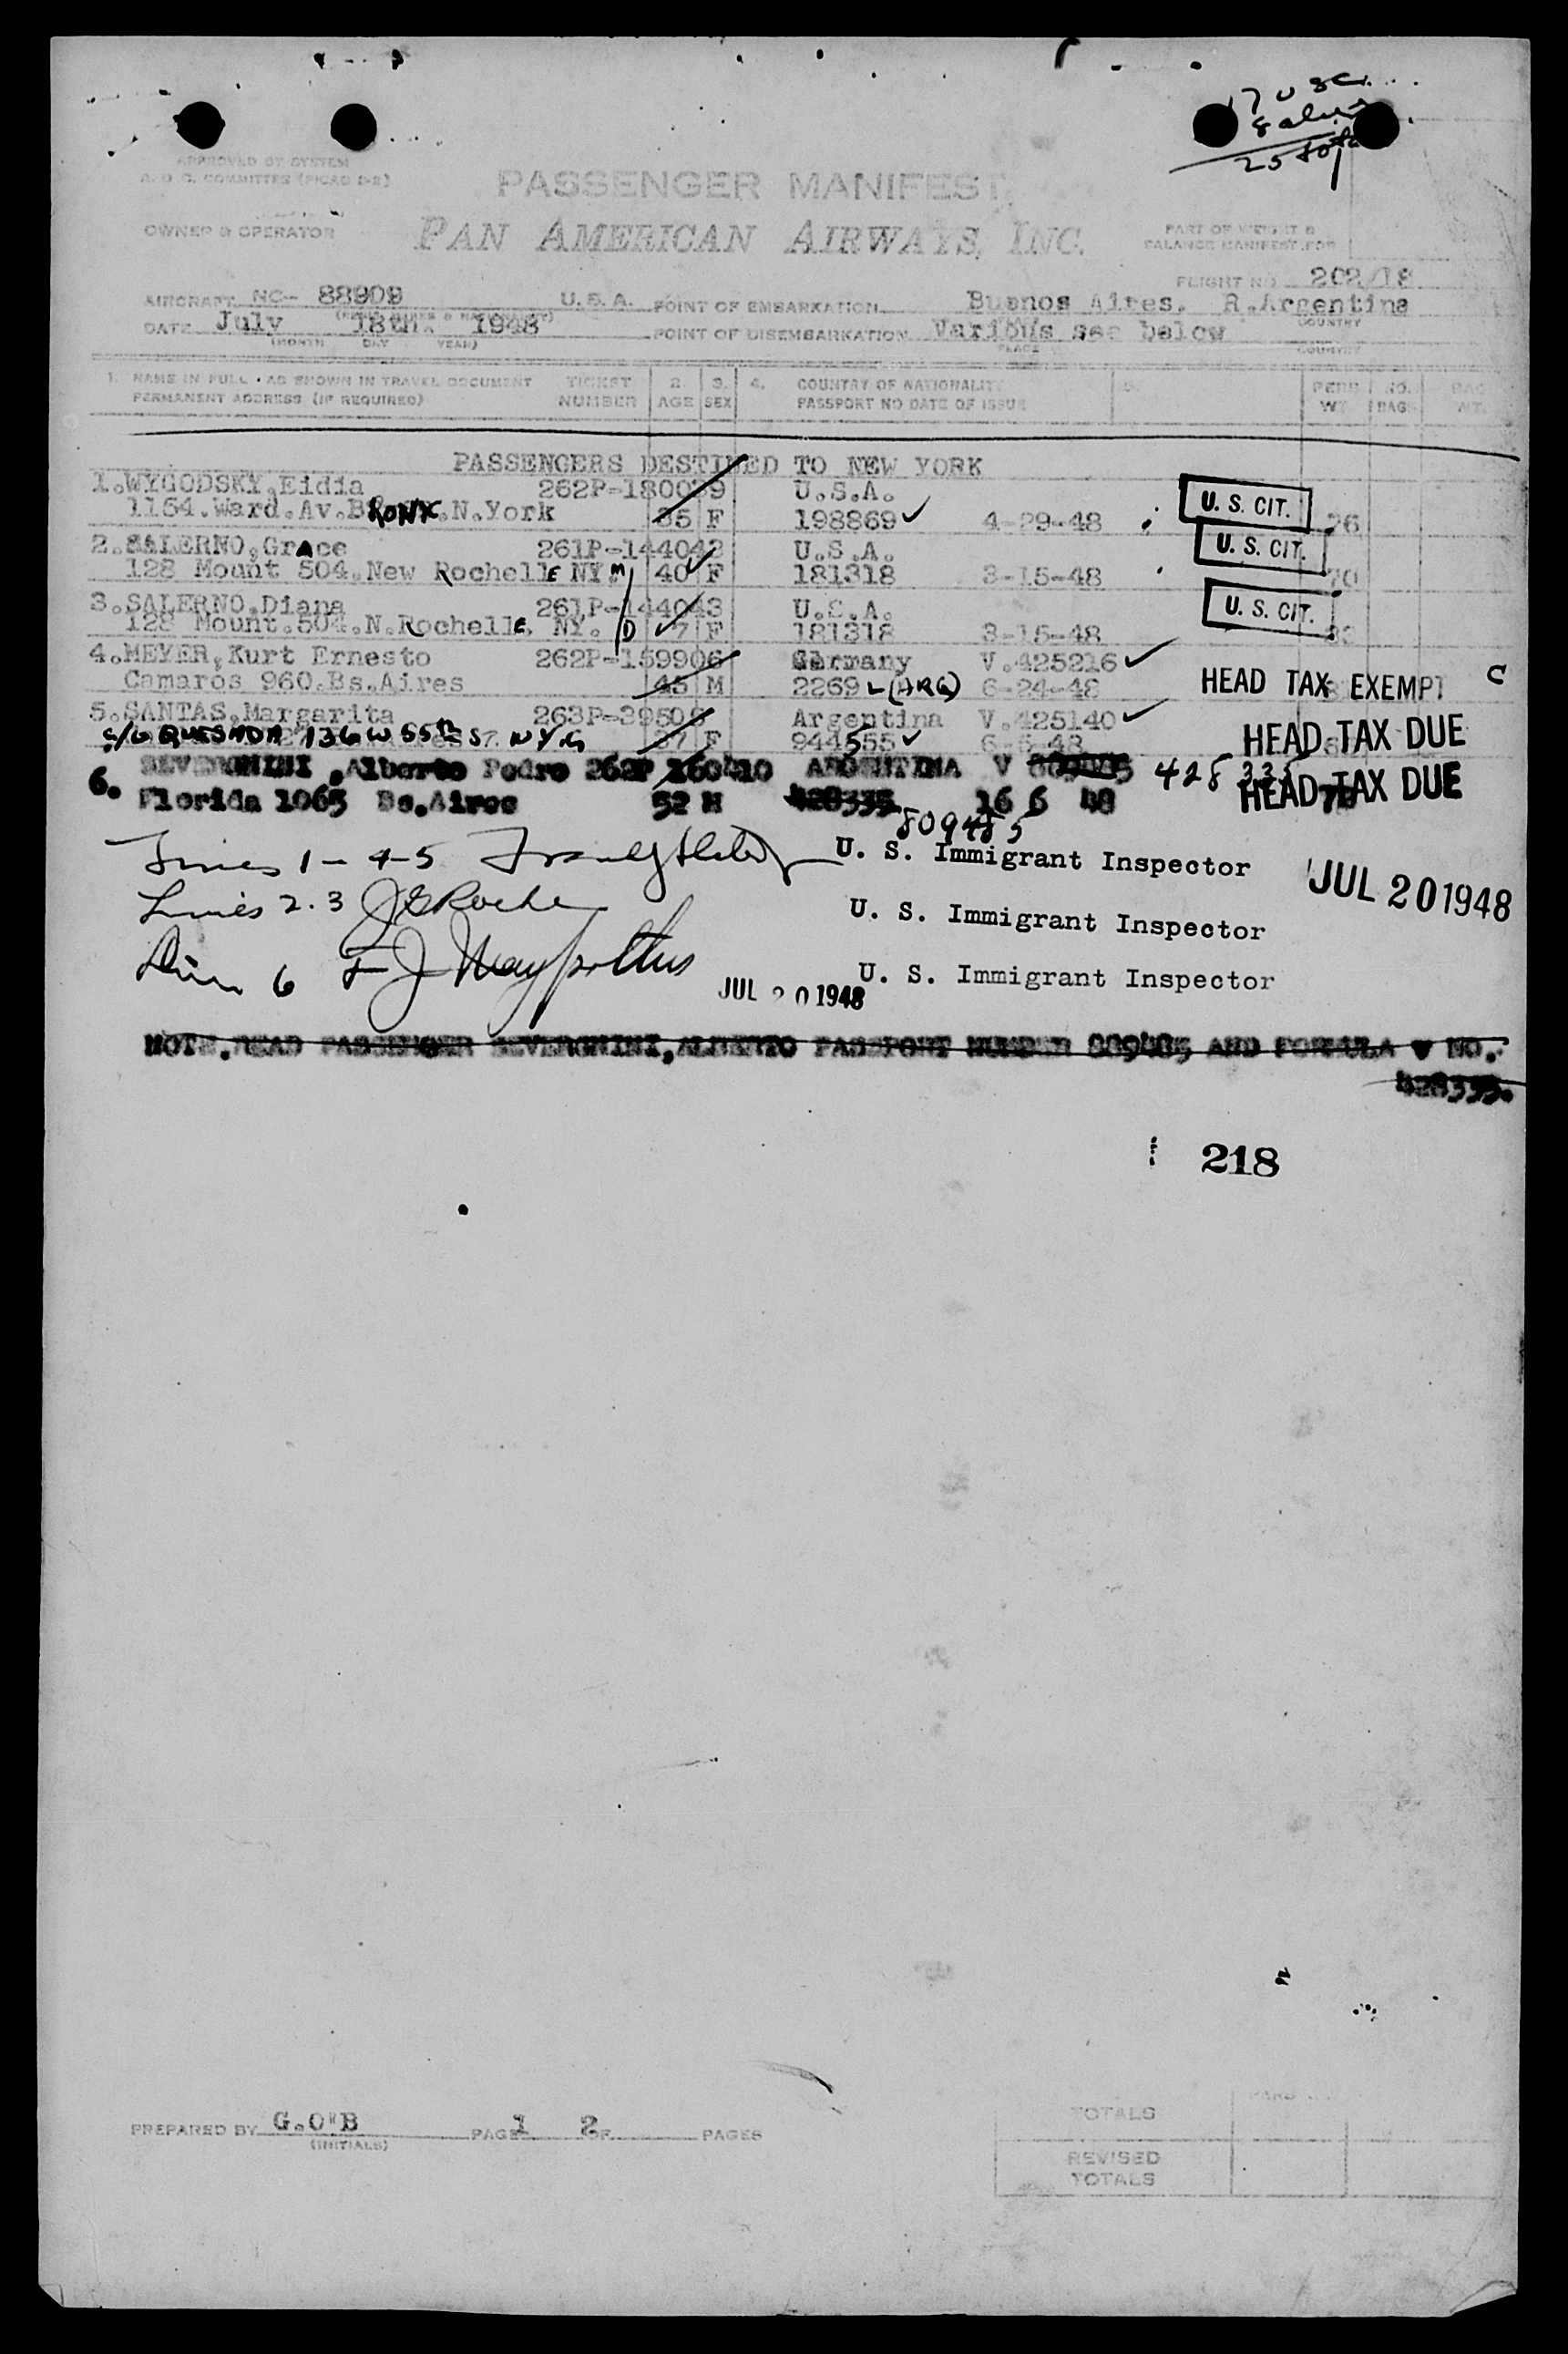 17 USC
8 alien
25 total
APPROVED BY SYSTEM
A. O. C. COMMITTEE (PICAO
PASSENGER MANIFEST
OWNER & OPERATOR
PAN AMERICAN AIRWAYS, INC.
PART OF WEIGHT &
BALANCE MANIFEST FOR
FLIGHT NO. 202/18
AIRCRAFT NC- 88909 U.S.A. POINT OF EMBARKATION Buenos Aires. R.Argentina
DATE July 18th. 1948 POINT OF DISEMBARKATION Various see below
(MONTH DAY YEAR) PLACE COUNTRY
1. NAME IN FULL - AS SHOWN IN TRAVEL DOCUMENT TICKET 2. 3. 4. COUNTRY OF NATIONALITY 5. PERS NO. BAG
PERMANENT ADDRESS (IF REQUIRED) NUMBER AGE SEX PASSPORT NO DATE OF ISSUE WT. BAG. WT.
PASSENGERS DESTINED TO NEW YORK
1.WYGODSKY,Eidia 262P-180039 U.S.A. U. S. CIT.
1154.Ward.Av.BRONX.N.York 35 F 198869 4-29-48 76
2.SALERNO,Grace 261P-144042 U.S.A. U. S. CIT.
128 Mount 504.New RochellE NY. M 40 F 181318 3-15-48 70
3.SALERNO,Diana 261P-144043 U.S.A. U. S. CIT.
128 Mount.504.N.RochellE. NY. D 7 F 181318 3-15-48
4.MEYER,Kurt Ernesto 262P-159906 Germany V.425216
Camaros 960.Bs.Aires 45 M 2269 (ARG) 6-24-48 HEAD TAX EXEMPT C
5.SANTAS,Margarita 263P-39505 Argentina V.425140 HEAD TAX DUE
c/o QUESADA 136 W 55th St NYC 37 F 944555 6-5-48
6. SEVERGNINI ,Alberto Pedro 262P 160410 ARGENTINA V 809485 428335 HEAD TAX DUE
Florida 1065 Bs.Aires 52 M 428335 16 6 48
809485
Lines 1-4-5 U. S. Immigrant Inspector JUL 20 1948
Lines 2.3 J G Roche U. S. Immigrant Inspector
Line 6 F J U. S. Immigrant Inspector
JUL 20 1948
NOTE.READ PASSENGER SEVERGNINI,ALBERTO PASSPORT NUMBER 809485 AND FORMULA V NO.
428335.
218
PREPARED BY G.O'B PAGE 1 2 OF PAGES
(INITIALS)
TOTALS
REVISED
TOTALS